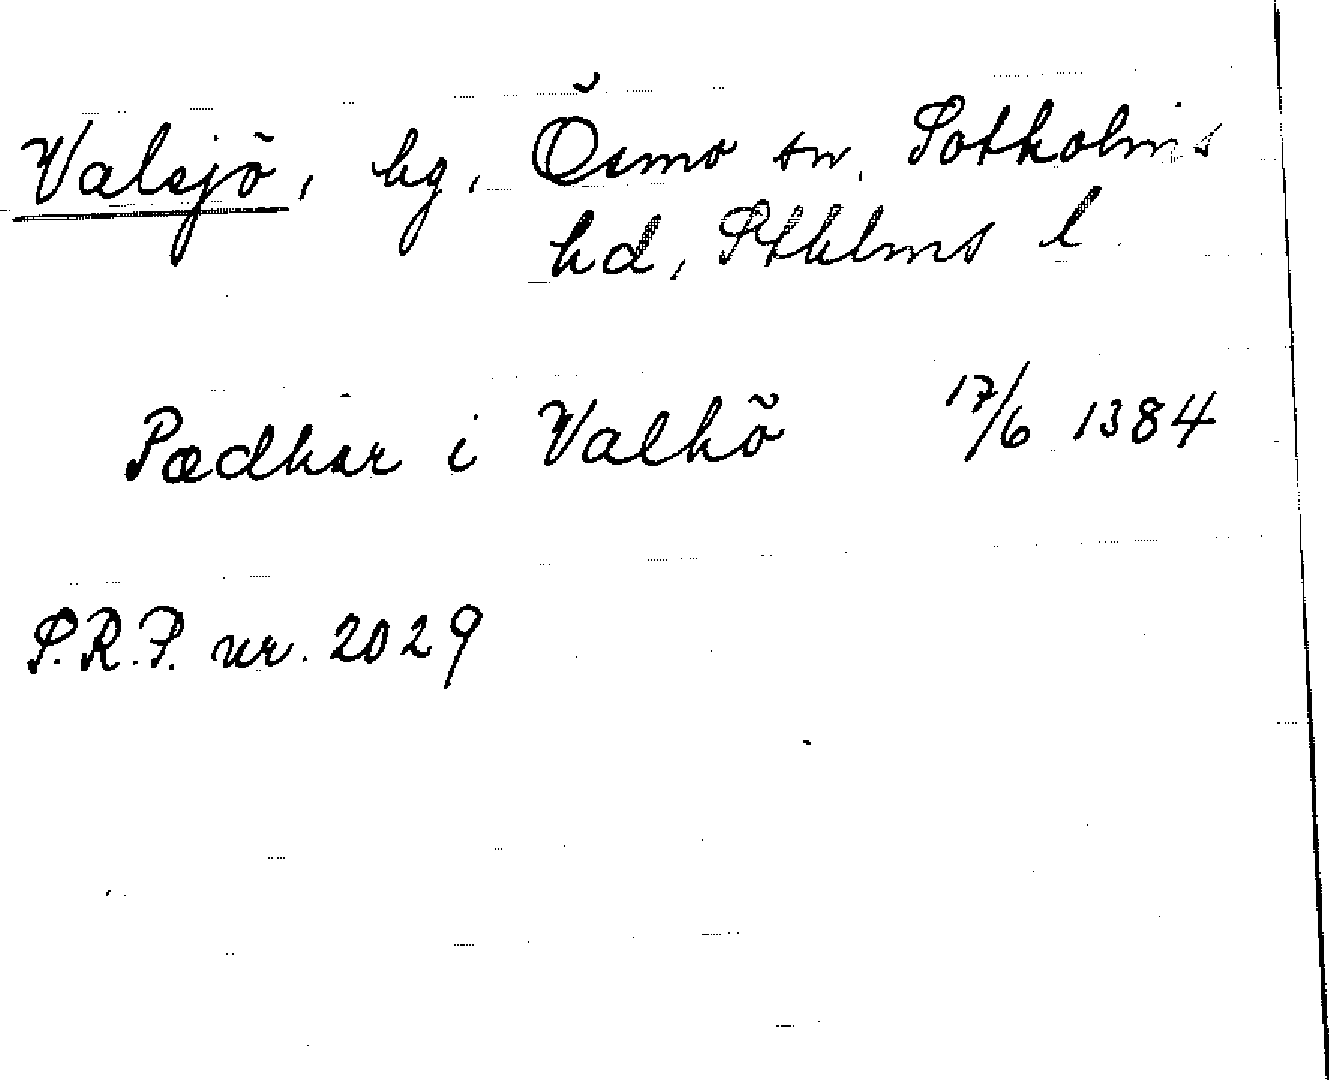 Valsjö, by, Ösmo sn, Sotholms
hd, Sthlms l.
Pædhar i Valhö 17/6 1384
S.R.P. nr. 2029